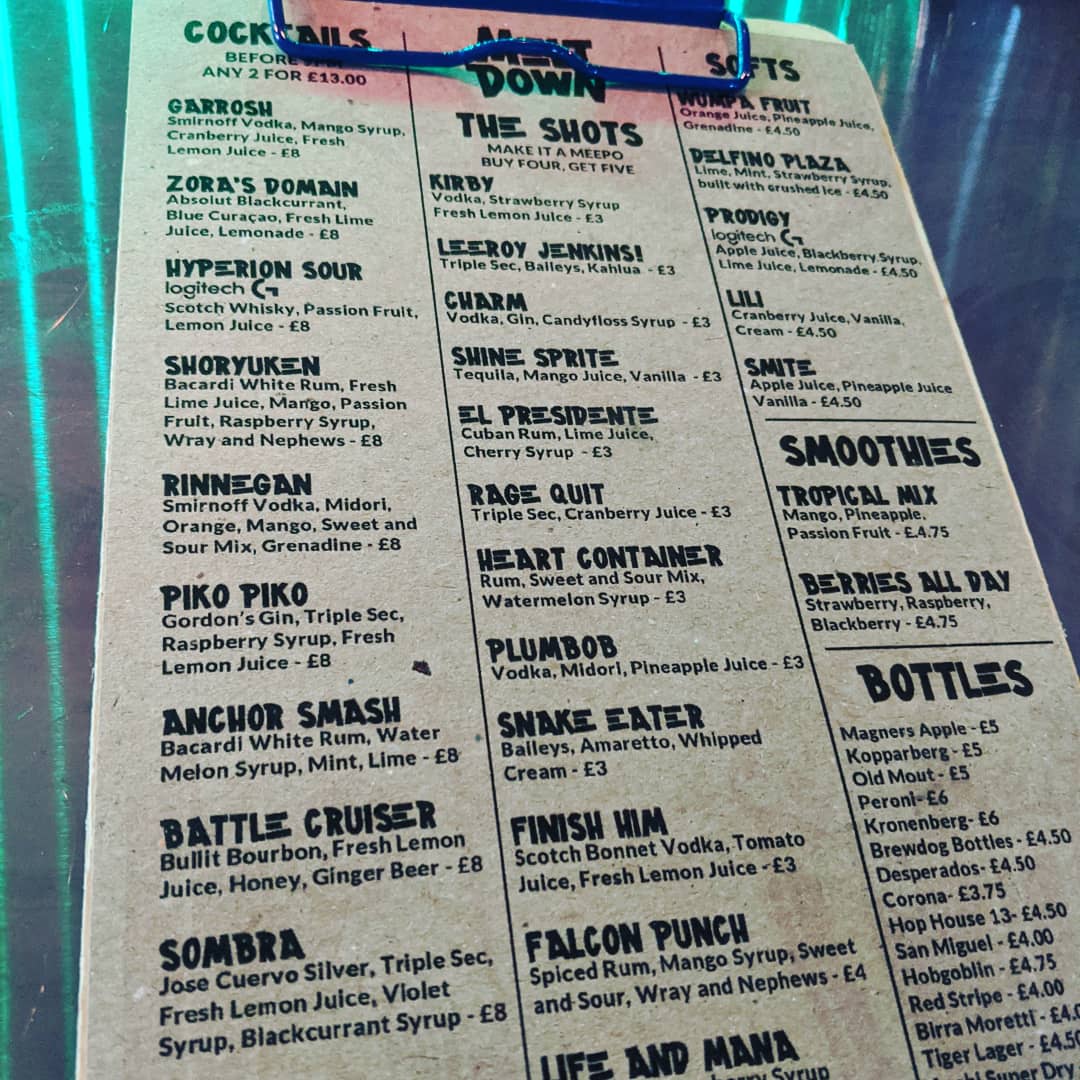 COCKTAILS
BEFORE 7PM
ANY 2 FOR £13.00
GARROSH
Smirnoff Vodka, Mango Syrup,
Cranberry Juice, Fresh
Lemon Juice - £8
ZORA'S DOMAIN
Absolut Blackcurrant,
Blue Curaçao, Fresh Lime
Juice, Lemonade - £8
HYPERION SOUR
logitech G
Scotch Whisky, Passion Fruit,
Lemon Juice - £8
SHORYUKEN
Bacardi White Rum, Fresh
Lime Juice, Mango, Passion
Fruit, Raspberry Syrup,
Wray and Nephews - £8
RINNEGAN
Smirnoff Vodka, Midori,
Orange, Mango, Sweet and
Sour Mix, Grenadine - £8
PIKO PIKO
Gordon's Gin, Triple Sec,
Raspberry Syrup, Fresh
Lemon Juice - £8
ANCHOR SMASH
Bacardi White Rum, Water
Melon Syrup, Mint, Lime - £8
BATTLE CRUISER
Bullit Bourbon, Fresh Lemon
Juice, Honey, Ginger Beer - £8
SOMBRA
Jose Cuervo Silver, Triple Sec,
Fresh Lemon Juice, Violet
Syrup, Blackcurrant Syrup - £8
MELT
DOWN
THE SHOTS
MAKE IT A MEEPO
BUY FOUR, GET FIVE
KIRBY
Vodka, Strawberry Syrup
Fresh Lemon Juice - £3
LEEROY JENKINS!
Triple Sec, Baileys, Kahlua - £3
CHARM
Vodka, Gin, Candyfloss Syrup - £3
SHINE SPRITE
Tequila, Mango Juice, Vanilla - £3
EL PRESIDENTE
Cuban Rum, Lime Juice,
Cherry Syrup - £3
RAGE QUIT
Triple Sec, Cranberry Juice - £3
HEART CONTAINER
Rum, Sweet and Sour Mix,
Watermelon Syrup - £3
PLUMBOB
Vodka, Midori, Pineapple Juice - £3
SNAKE EATER
Baileys, Amaretto, Whipped
Cream - £3
FINISH HIM
Scotch Bonnet Vodka, Tomato
Juice, Fresh Lemon Juice - £3
FALCON PUNCH
Spiced Rum, Mango Syrup, Sweet
and Sour, Wray and Nephews - £4
LIFE AND MANA
Syrup
SOFTS
WUMPA FRUIT
Orange Juice, Pineapple Juice,
Grenadine - £4.50
DELFINO PLAZA
Lime, Mint, Strawberry Syrup,
built with crushed ice - £4.50
PRODIGY
logitech G
Apple Juice, Blackberry Syrup,
Lime Juice, Lemonade - £4.50
LILI
Cranberry Juice, Vanilla,
Cream - £4.50
SMITE
Apple Juice, Pineapple Juice
Vanilla - £4.50
SMOOTHIES
TROPICAL MIX
Mango, Pineapple,
Passion Fruit - £4.75
BERRIES ALL DAY
Strawberry, Raspberry,
Blackberry - £4.75
BOTTLES
Magners Apple - £5
Kopparberg - £5
Old Mout - £5
Peroni- £6
Kronenberg- £6
Brewdog Bottles - £4.50
Desperados- £4.50
Corona- £3.75
Hop House 13- £4.50
San Miguel - £4.00
Hobgoblin - £4.75
Red Stripe - £4.00
Birra Moretti -
Tiger Lager -
Super Dry